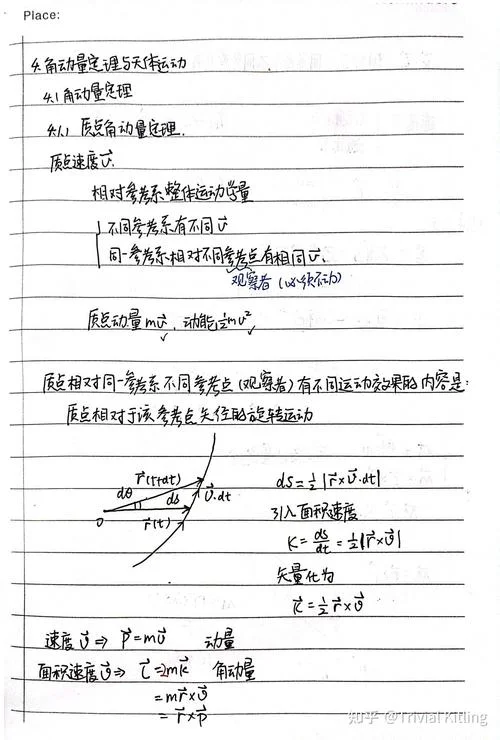 Place:
4.角动量定理与天体运动
4.1 角动量定理
4.1.1 质点角动量定理.
质点速度v⃗.
相对参考系整体运动学量
不同参考系有不同v⃗
同一参考系相对不同参考点有相同v⃗.
观察者(必须不动)
质点动量mv⃗, 动能½mv²
质点相对同一参考系不同参考点(观察者)有不同运动效果的内容是:
质点相对于该参考点矢径的旋转运动
r⃗(t+dt)
dθ
ds
v⃗·dt
O
r⃗(t)
ds=½|r⃗×v⃗·dt|
引入面积速度
K=ds/dt=½|r⃗×v⃗|
矢量化为
K⃗=½r⃗×v⃗
速度v⃗⇒ P⃗=mv⃗ 动量
面积速度v⃗⇒ L⃗=2mk⃗ 角动量
=mr⃗×v⃗
=r⃗×p⃗
知乎 @Trivial Kitling